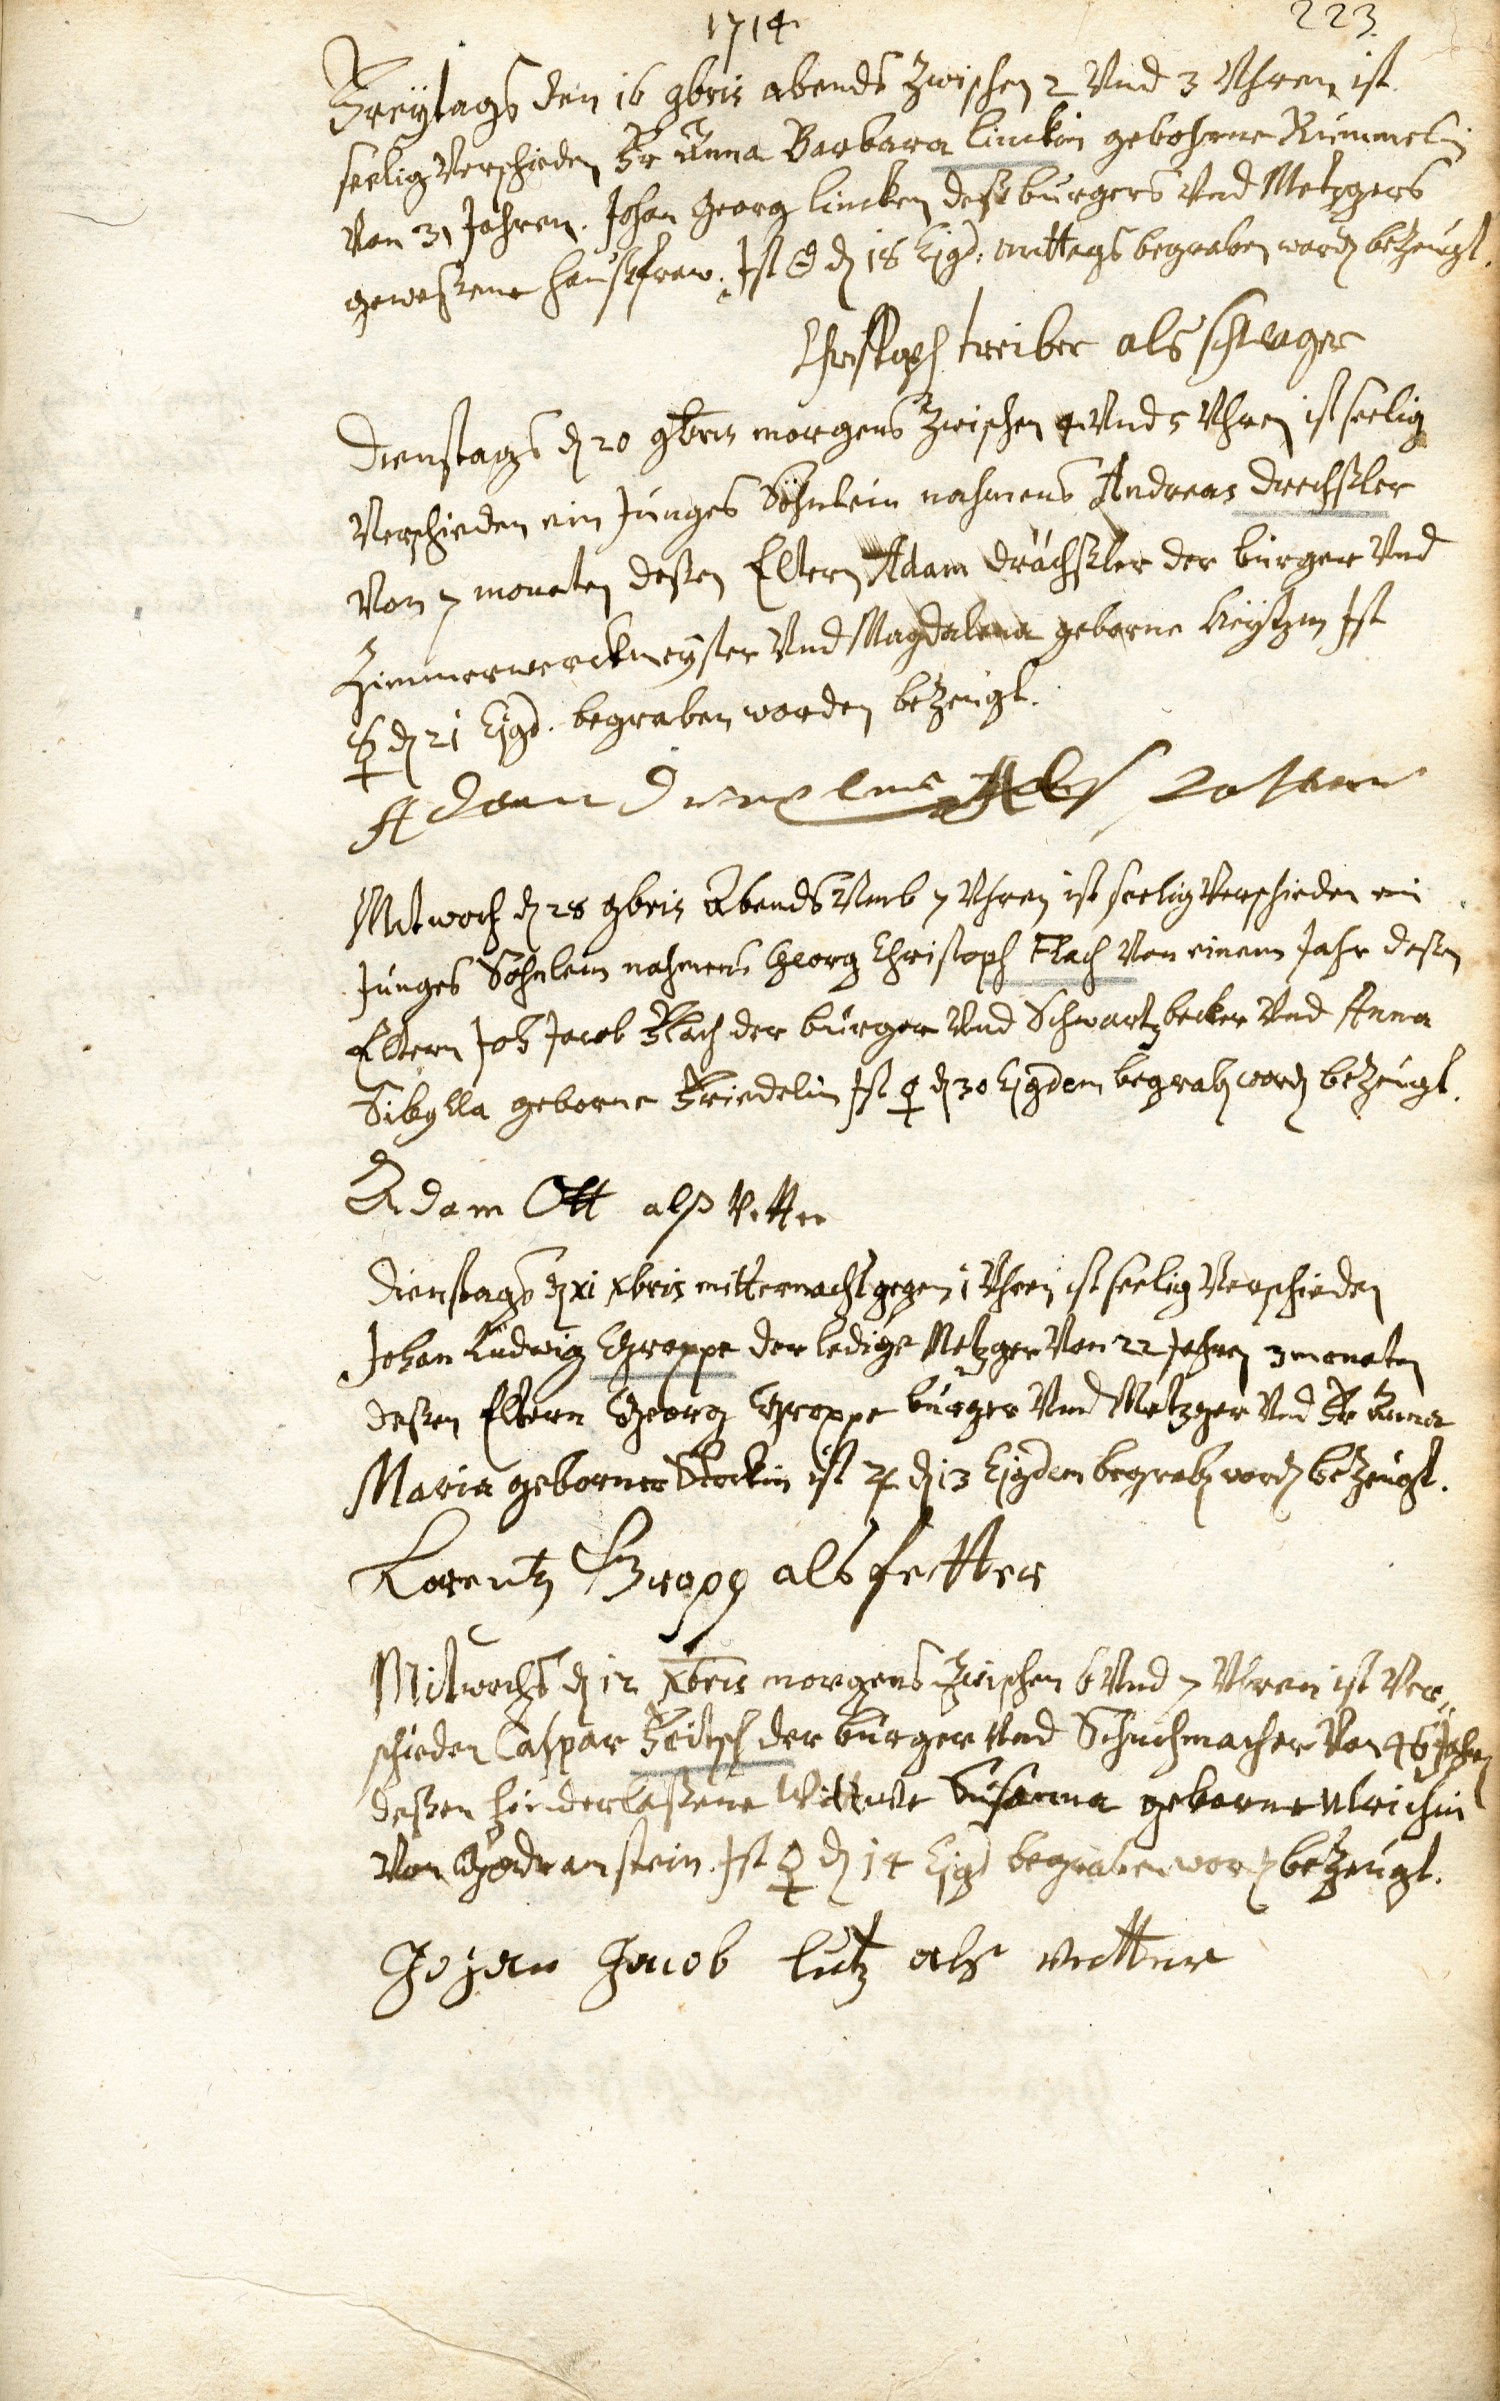 1714
223.
Freÿtags den 16 9bris abends Zwischen 2 Vnd 3 Vhren ist
seelig Verschieden Fr Anna Barbara linckin gebohrne Rummelin
Von 31 Jahren. Johan Georg lincken deß burgers Vnd Metzgers
geweßene haußfraw. Ist ☉ d 18 Ejgd: mittags begraben word bezeugt.
Christoph treiber als schwager
Dienstags d 20 9bris morgens Zwischen 4 Vnd 5 Vhren ist seelig
Verschieden ein Junges Söhnlein nahmens Andreas drechßler
Von 7 monaten deßen Eltern Adam drächßler der burger Vnd
Zimmerwerckmeÿster Vnd Magdalena geborne Ist
☿ d 21 Ejgd. begraben worden bezeugt.
Adam
Mitwoch d 28 9bris Abends Vmb 7 Vhren ist seelig Verschieden ein
Junges Söhnlein nahmens Georg Christoph Flach Von einem Jahr deßen
Eltern Joh Jacob Flach der burger Vnd Schwartzbecker Vnd Anna
Sibylla geborne Friedelin Ist ♀ d 30 Ejgdem begrab word bezeugt.
Adam Ott alß Vetter
Dienstags d xi xbris mitternacht gegen 1 Vhren ist seelig Verschieden
Johan Ludwig Groppe der ledige Metzger Von 22 Jahren 3 monaten
deßen Eltern Georg Groppe burger Vnd Metzger Vnd Fr Anna
Maria geborne ist ♃ d 13 Ejgdem begrab word bezeugt.
Lorentz Gropp als fetter
Mitwochs d 12 xbris morgens Zwischen 6 Vnd 7 Vhren ist Ver„
schieden Caspar Feitsch der burger Vnd Schuhmacher Von 46 Jahren
deßen hinderlaßene Wittwe Susanna geborne Ulrichin
Von Godramstein. Ist ♀ d 14 Ejgd begraben word bezeugt.
Johan Jacob lutz als vetter